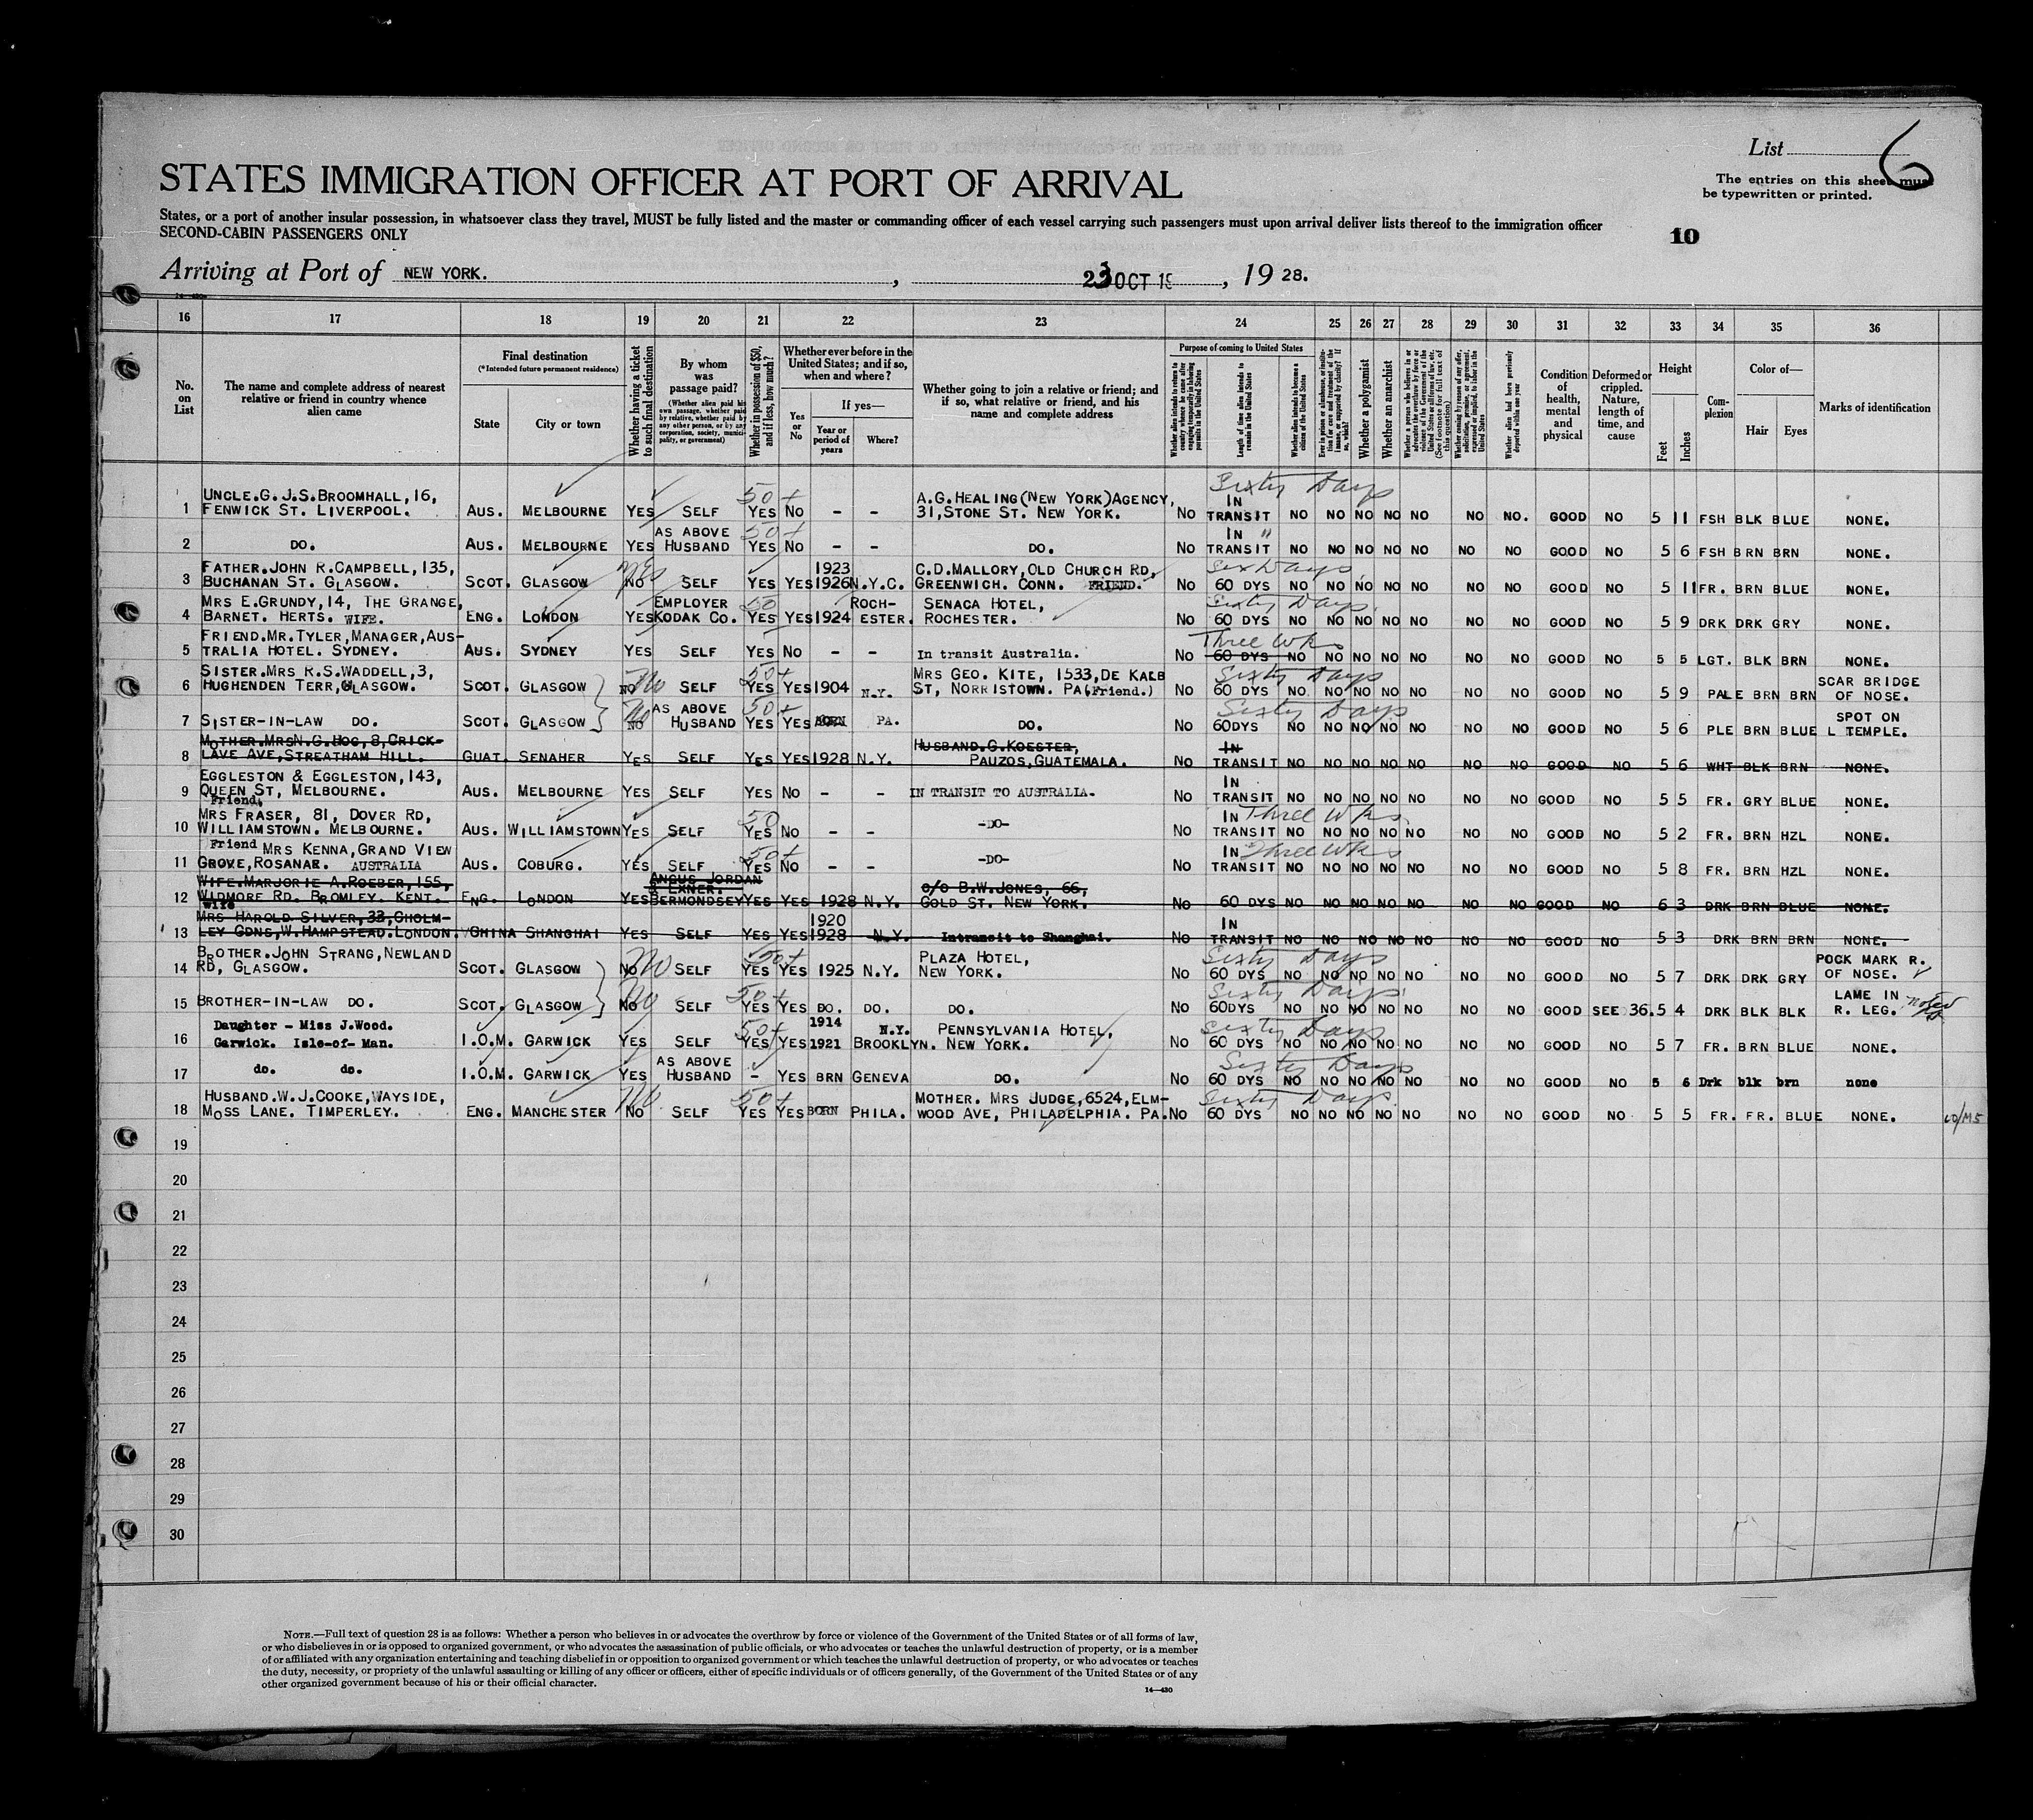 List 6
The entries on this sheet must
be typewritten or printed.
STATES IMMIGRATION OFFICER AT PORT OF ARRIVAL
States, or a port of another insular possession, in whatsoever class they travel, MUST be fully listed and the master or commanding officer of each vessel carrying such passengers must upon arrival deliver lists thereof to the immigration officer
SECOND-CABIN PASSENGERS ONLY
10
Arriving at Port of NEW YORK. , 23 OCT 19 , 19 28.
16 17 18 19 20 21 22 23 24 25 26 27 28 29 30 31 32 33 34 35 36
No. on List
The name and complete address of nearest relative or friend in country whence alien came
Final destination
(*Intended future permanent residence)
State
City or town
Whether having a ticket to such final destination
By whom was passage paid?
(Whether alien paid his own passage, whether paid by relative, whether paid by any other person, or by any corporation, society, municipality, or government)
Whether in possession of $50, and if less, how much?
Whether ever before in the United States; and if so, when and where?
Yes or No
If yes—
Year or period of years
Where?
Whether going to join a relative or friend; and if so, what relative or friend, and his name and complete address
Purpose of coming to United States
Whether alien intends to return to country whence he came after engaging temporarily in laboring pursuits in the United States
Length of time alien intends to remain in the United States
Whether alien intends to become a citizen of the United States
Ever in prison or almshouse, or institution for care and treatment of the insane, or supported by charity? If so, which?
Whether a polygamist
Whether an anarchist
Whether a person who believes in or advocates the overthrow by force or violence of the Government of the United States or all forms of law, etc. (See footnote for full text of this question)
Whether coming by reason of any offer, solicitation, promise, or agreement, expressed or implied, to labor in the United States
Whether alien had been previously deported within one year
Condition of health, mental and physical
Deformed or crippled. Nature, length of time, and cause
Height
Feet
Inches
Complexion
Color of—
Hair
Eyes
Marks of identification
Sixty Days
1 UNCLE.G.J.S.BROOMHALL,16, FENWICK ST. LIVERPOOL. AUS. MELBOURNE YES SELF 50+ YES NO - - A.G.HEALING(NEW YORK)AGENCY, 31,STONE ST. NEW YORK. NO IN TRANSIT NO NO NO NO NO NO NO. GOOD NO 5 11 FSH BLK BLUE NONE.
2 DO. AUS. MELBOURNE YES AS ABOVE HUSBAND 50+ YES NO - - DO. NO IN TRANSIT " NO NO NO NO NO NO NO GOOD NO 5 6 FSH BRN BRN NONE.
3 FATHER.JOHN R.CAMPBELL,135, BUCHANAN ST. GLASGOW. SCOT. GLASGOW NO Yes SELF YES YES 1923 1926 N.Y.C. C.D.MALLORY,OLD CHURCH RD, GREENWICH. CONN. FRIEND. NO Six Days 60 DYS NO NO NO NO NO NO NO GOOD NO 5 11 FR. BRN BLUE NONE.
4 MRS E.GRUNDY,14, THE GRANGE, BARNET. HERTS. WIFE. ENG. LONDON YES EMPLOYER KODAK CO. 50 YES YES 1924 ROCHESTER. SENACA HOTEL, ROCHESTER. NO Sixty Days 60 DYS NO NO NO NO NO NO NO GOOD NO 5 9 DRK DRK GRY NONE.
5 FRIEND.MR.TYLER,MANAGER,AUSTRALIA HOTEL. SYDNEY. AUS. SYDNEY YES SELF YES NO - - In transit Australia. NO Three Wks 60 DYS NO NO NO NO NO NO NO GOOD NO 5 5 LGT. BLK BRN NONE.
6 SISTER.MRS R.S.WADDELL,3, HUGHENDEN TERR,GLASGOW. SCOT. GLASGOW NO No SELF 50+ YES YES 1904 N.Y. MRS GEO. KITE, 1533,DE KALB ST, NORRISTOWN. PA(Friend.) NO Sixty Days 60 DYS NO. NO NO NO NO NO NO GOOD NO 5 9 PALE BRN BRN SCAR BRIDGE OF NOSE.
7 SISTER-IN-LAW DO. SCOT. GLASGOW NO No AS ABOVE HUSBAND 50+ YES YES BORN PA. DO. NO Sixty Days 60DYS NO NO NO NO NO NO NO GOOD NO 5 6 PLE BRN BLUE SPOT ON L TEMPLE.
8 MOTHER.MRSN.G.HOG,8,CRICKLAVE AVE,STREATHAM HILL. GUAT. SENAHER YES SELF YES YES 1928 N.Y. HUSBAND.G.KOESTER, PAUZOS,GUATEMALA. NO IN TRANSIT NO NO NO NO NO NO NO GOOD NO 5 6 WHT BLK BRN NONE.
9 EGGLESTON & EGGLESTON,143, QUEEN ST, MELBOURNE. AUS. MELBOURNE YES SELF YES NO - - IN TRANSIT TO AUSTRALIA. NO IN TRANSIT NO NO NO NO NO NO NO GOOD NO 5 5 FR. GRY BLUE NONE.
10 Friend. MRS FRASER, 81, DOVER RD, WILLIAMSTOWN. MELBOURNE. AUS. WILLIAMSTOWN YES SELF 50 YES NO - - -DO- NO IN TRANSIT Three Wks NO NO NO NO NO NO NO GOOD NO 5 2 FR. BRN HZL NONE.
11 Friend MRS KENNA,GRAND VIEW GROVE,ROSANAR. AUSTRALIA AUS. COBURG. YES SELF 50+ YES NO - - -DO- NO IN TRANSIT Three Wks NO NO NO NO NO NO NO GOOD NO 5 8 FR. BRN HZL NONE.
12 WIFE.MARJORIE A.ROEBER,155, WIDMORE RD. BROMLEY. KENT. ENG. LONDON YES ANGUS JORDAN & EXNER. BERMONDSEY YES YES 1928 N.Y. C/O B.W.JONES, 66, GOLD ST. NEW YORK. NO 60 DYS NO NO NO NO NO NO NO GOOD NO 6 3 DRK BRN BLUE NONE.
13 wife MRS HAROLD SILVER,33,CHOLMLEY GDNS,W.HAMPSTEAD.LONDON. CHINA SHANGHAI YES SELF YES YES 1920 1928 N.Y. Intransit to Shanghai. NO IN TRANSIT NO NO NO NO NO NO NO GOOD NO 5 3 DRK BRN BRN NONE.
14 BROTHER.JOHN STRANG,NEWLAND RD, GLASGOW. SCOT. GLASGOW NO No SELF 50+ YES YES 1925 N.Y. PLAZA HOTEL, NEW YORK. NO Sixty Days 60 DYS NO NO NO NO NO NO NO GOOD NO 5 7 DRK DRK GRY POCK MARK R. OF NOSE.
15 BROTHER-IN-LAW DO. SCOT. GLASGOW NO No SELF 50+ YES YES DO. DO. DO. NO Sixty Days 60DYS NO NO NO NO NO NO NO GOOD SEE 36. 5 4 DRK BLK BLK LAME IN R. LEG. noted
16 Daughter - Miss J.Wood. Garwick. Isle-of-Man. I.O.M. GARWICK YES SELF 50+ YES YES 1914 1921 N.Y. BROOKLYN. PENNSYLVANIA HOTEL, NEW YORK. NO Sixty Days 60 DYS NO NO NO NO NO NO NO GOOD NO 5 7 FR. BRN BLUE NONE.
17 do. do. I.O.M. GARWICK YES AS ABOVE HUSBAND - YES BRN GENEVA DO. NO Sixty Days 60 DYS NO NO NO NO NO NO NO GOOD NO 5 6 Drk blk brn none
18 HUSBAND.W.J.COOKE,WAYSIDE, MOSS LANE. TIMPERLEY. ENG. MANCHESTER NO No SELF 50+ YES YES BORN PHILA. MOTHER. MRS JUDGE,6524,ELMWOOD AVE, PHILADELPHIA. PA. NO Sixty Days 60 DYS NO NO NO NO NO NO NO GOOD NO 5 5 FR. FR. BLUE NONE.
19
20
21
22
23
24
25
26
27
28
29
30
NOTE.—Full text of question 28 is as follows: Whether a person who believes in or advocates the overthrow by force or violence of the Government of the United States or of all forms of law,
or who disbelieves in or is opposed to organized government, or who advocates the assassination of public officials, or who advocates or teaches the unlawful destruction of property, or is a member
of or affiliated with any organization entertaining and teaching disbelief in or opposition to organized government or which teaches the unlawful destruction of property, or who advocates or teaches
the duty, necessity, or propriety of the unlawful assaulting or killing of any officer or officers, either of specific individuals or of officers generally, of the Government of the United States or of any
other organized government because of his or their official character.
14—430